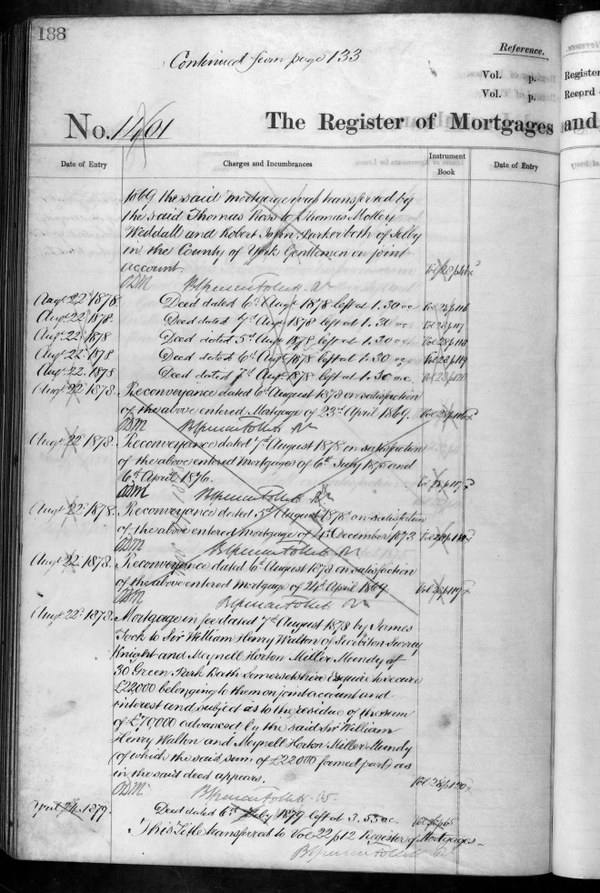 188
Continued from page 133
Reference.
Vol. p.
Vol. p.
Register
Record
No. 11401
The Register of Mortgages and
Date of Entry
Charges and Incumbrances
Instrument
Book
Date of Entry
1869 the said mortgage was transferred by
the said Thomas Ross to Thomas Motley
Weddall and Robert John Parker both of Selby
in the County of York Gentlemen on joint
account.
Augt 22d 1878 Deed dated 6th Augt 1878 left at 1.30 Vol 28 p 116
Augt 22d 1878 Deed dated 7th Augt 1878 left at 1.30 Vol 28 p 117
Augt 22d 1878 Deed dated 5th Augt 1878 left at 1.30 Vol 28 p 118
Augt 22d 1878 Deed dated 6th Augt 1878 left at 1.30 Vol 28 p 119
Augt 22. 1878 Deed dated 7th Augt 1878 left at 1.30 Vol 28 p 120
Augt 22d 1878. Reconveyance dated 6th August 1878 on satisfaction
of the above entered Mortgage of 23rd April 1869. Vol 28 p 116
Augt 22d 1878. Reconveyance dated 7th August 1878 on satisfaction
of the above entered mortgages of 6th July 1875 and
6th April 1876. Vol 28 p 117
Augt 22d 1878. Reconveyance dated 5th August 1878 on satisfaction
of the above entered mortgage of December 1873 Vol 28 p 118
Augt 22 1878. Reconveyance dated 6th August 1878 on satisfaction
of the above entered mortgage of 24th April 1869 Vol 28 p 119
Augt 22d 1878. Mortgage in fee dated 7th August 1878 by James
Tock to Sir William Henry Walton of Surrey
Knight and Meynell Horton Miller Mundy of
30 Green Park Bath Somersetshire Esquire to secure
£22000 belonging to them on joint account and
interest and subject as to the residue of the sum
of £70000 advanced by the said Sir William
Henry Walton and Meynell Horton Miller Mundy
(of which the said sum of £22000 formed part) as
in the said deed appears. Vol 28 p 120
24. 1879. Deed dated 6th 1879 left at 3.55
This Title transferred to Vol 22 p 12 Register of Mortgages